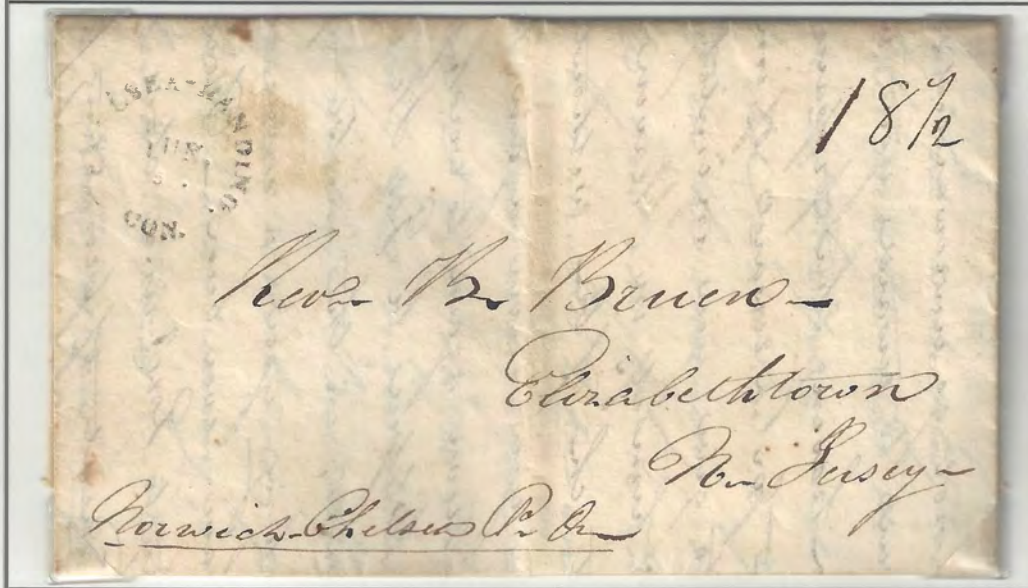 LSEA-LANDING
JUN.
CON.
18 1/2
Rev. B. Bruen
Elizabethtown
N. Jersey
Norwich Chelsea P. O.